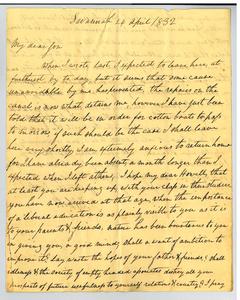 Savannah 24 April 1832
My dear Son
When I wrote last I expected to leave here, at
furthest by to day, but it seems that some cause
unavoidable by me, has prevented, the repairs on the
canal is now what detains me, however I have just been
told that it will be in order for cotton boats to pass
tomorrow if such should be the case I shall leave
here very shortly, I am extremely anxious to return home
for I have already been about a month longer than I
expected when I left there. I hope my dear
at least you are keeping up with your class in their studies
you have now arrived at that age, when the importance
of a liberal education is as plainly visible to you as it is
to your parents & friends, nature has been bounteous to you
in giving you a good mind, shall a want of ambition to
improve it, lay waste the hopes of your father & friends, & shall
idleness & the society of empty headed destroy all your
prospects of future usefulness to yourself relations & country, I pray